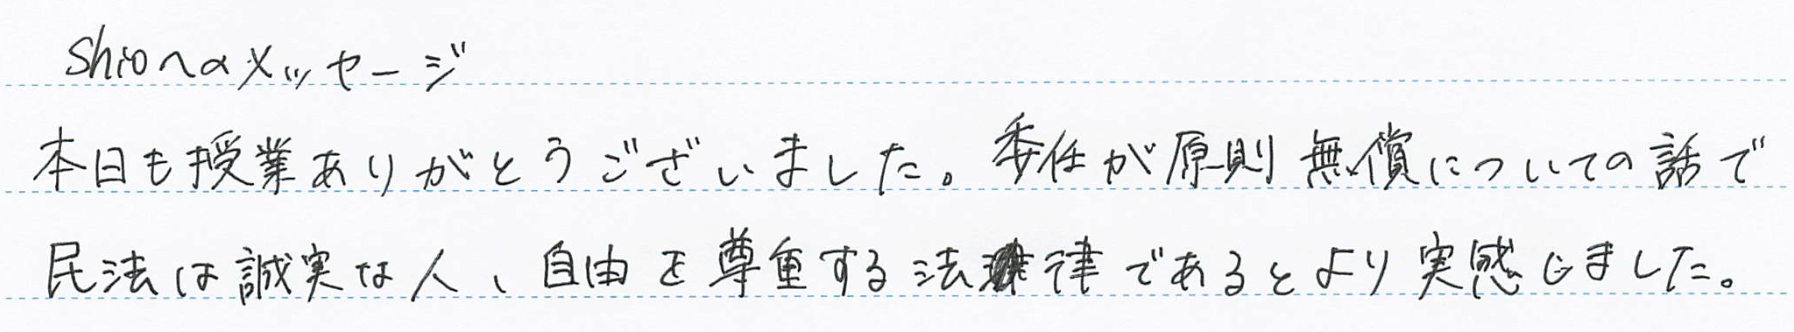 Shioへのメッセージ
本日も授業ありがとうございました。委任が原則無償についての話で
民法は誠実な人、自由を尊重する法律であるとより実感じました。